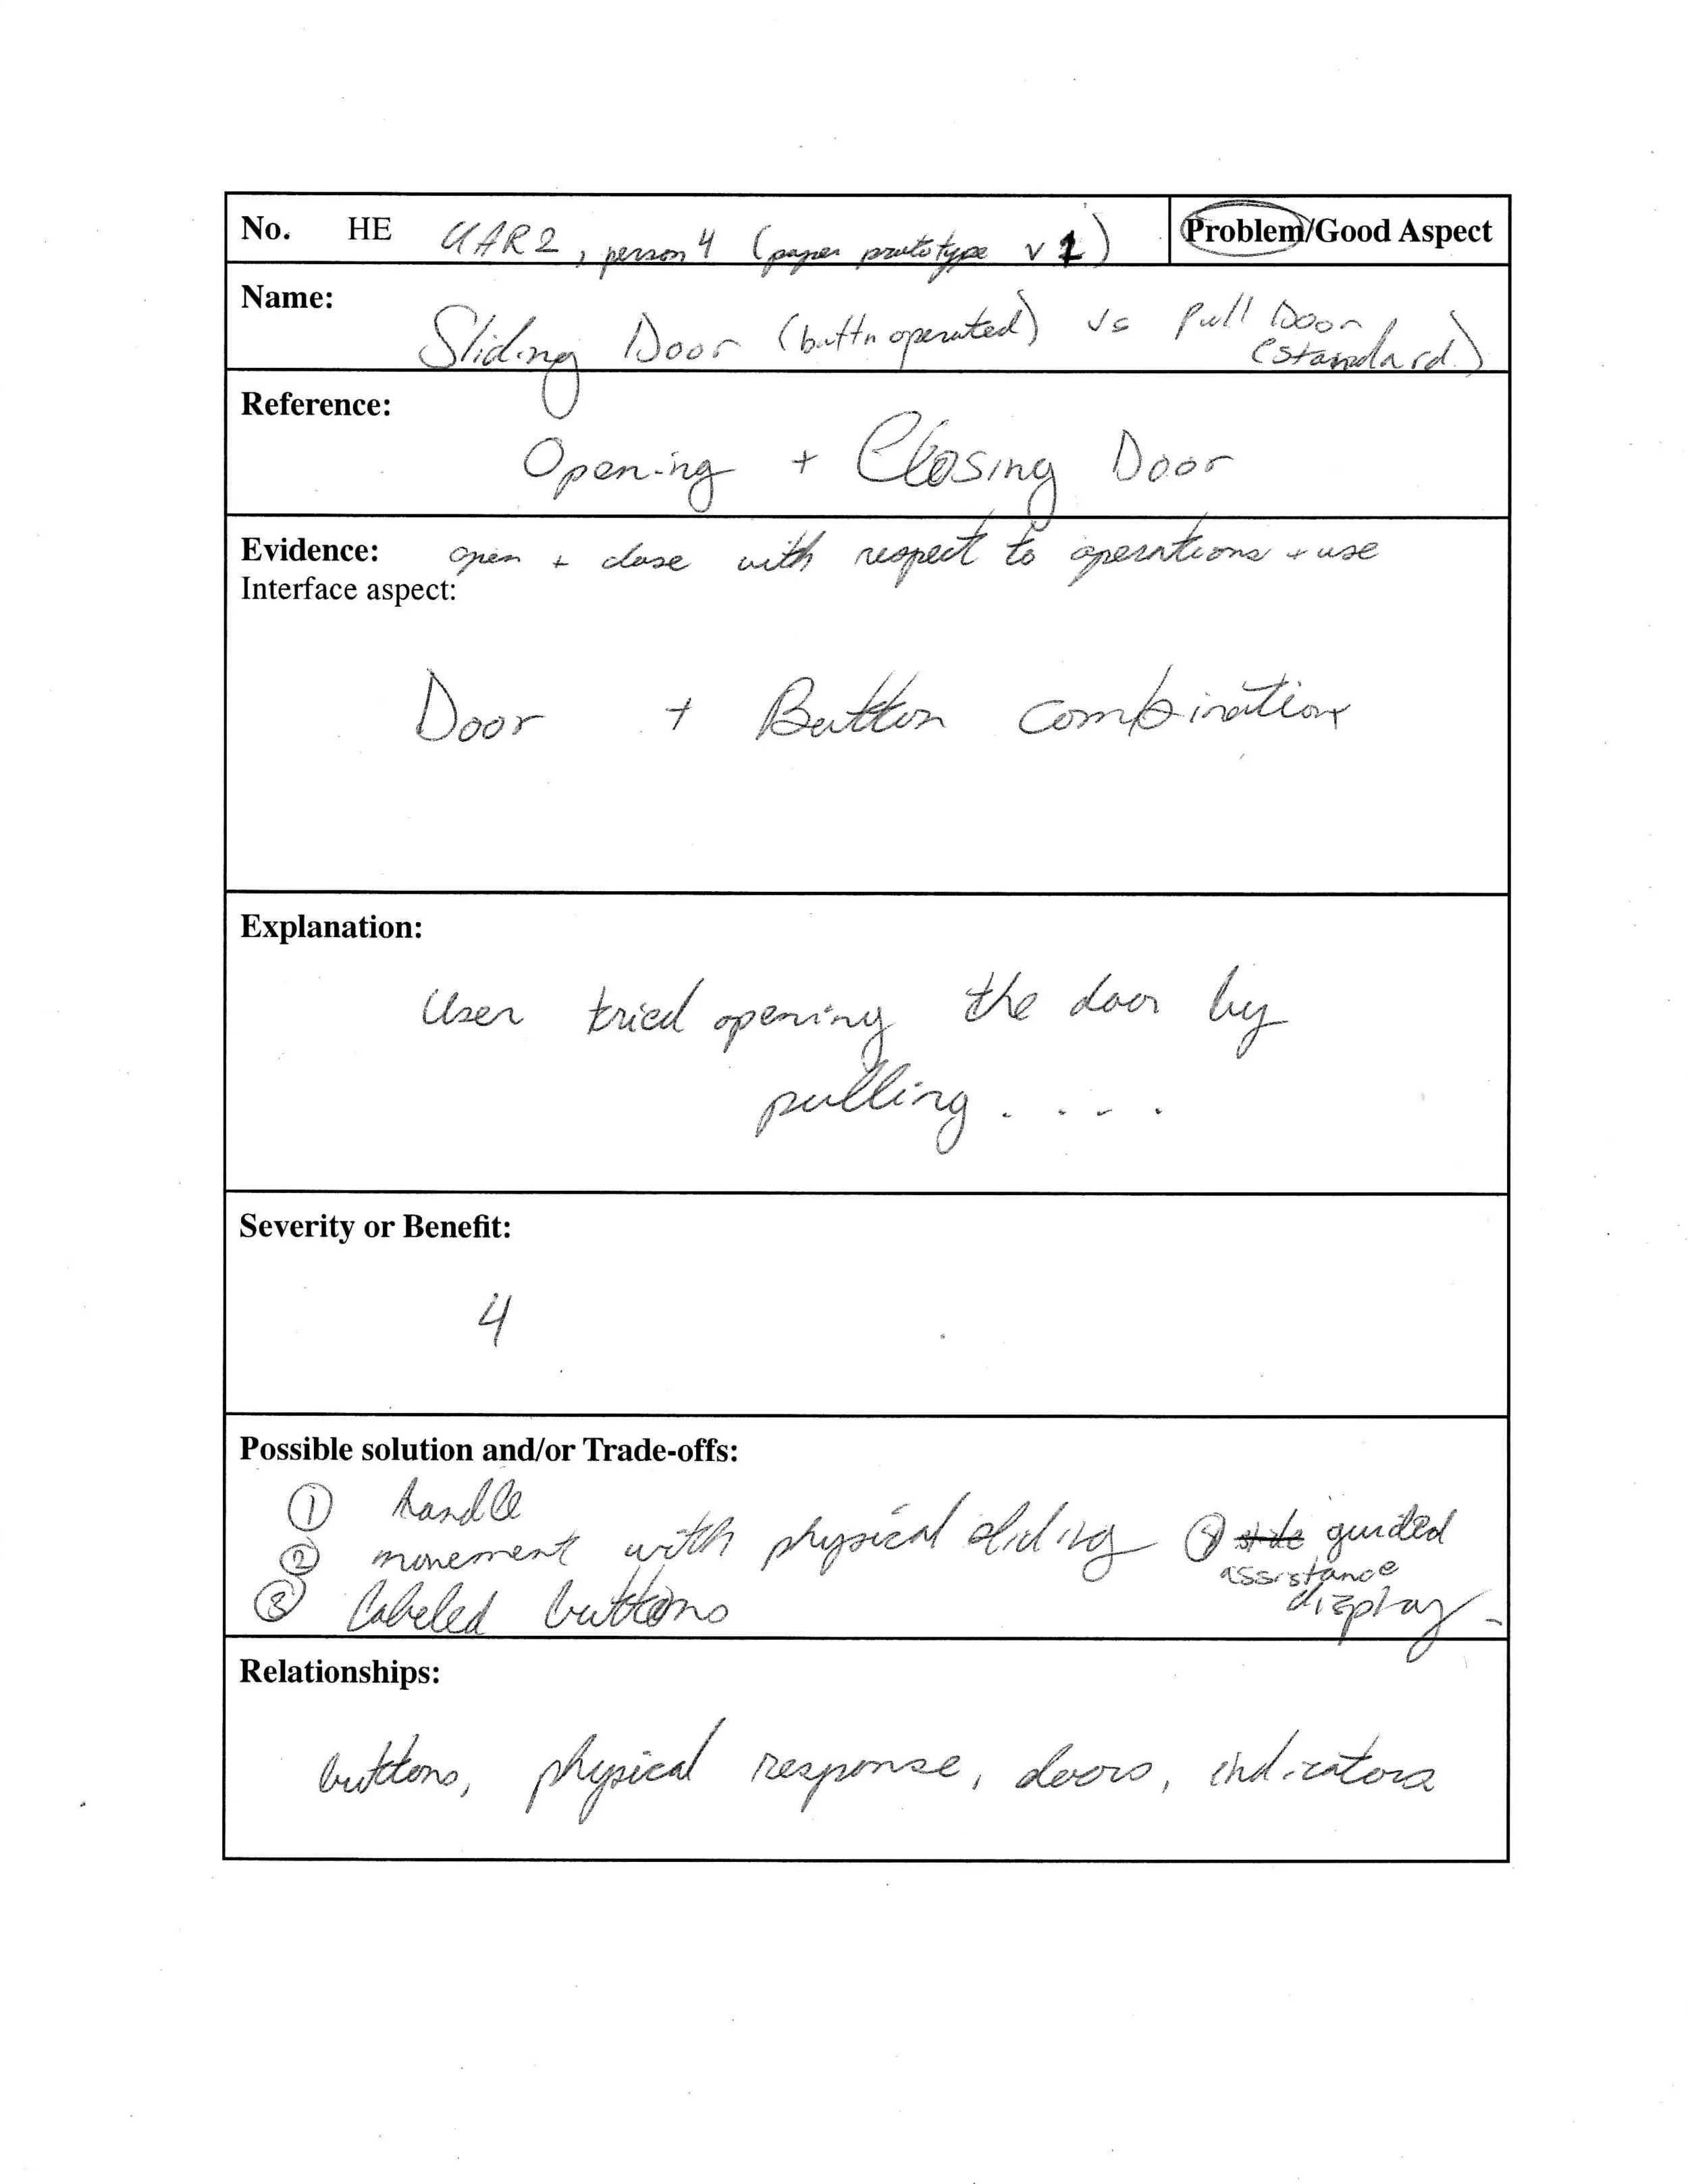 No. HE UAR2, person 4 (paper prototype v 1) Problem/Good Aspect
Name:
Sliding Door (buttn operated) vs Pull Door
(standard)
Reference:
Opening + Closing Door
Evidence: open + close with respect to operations + use
Interface aspect:
Door + Button combination
Explanation:
User tried opening the door by
pulling . . . .
Severity or Benefit:
4
Possible solution and/or Trade-offs:
① handle
② movement with physical sliding ④ guided
assistance
display
③ labeled buttons
Relationships:
buttons, physical response, doors, indicators